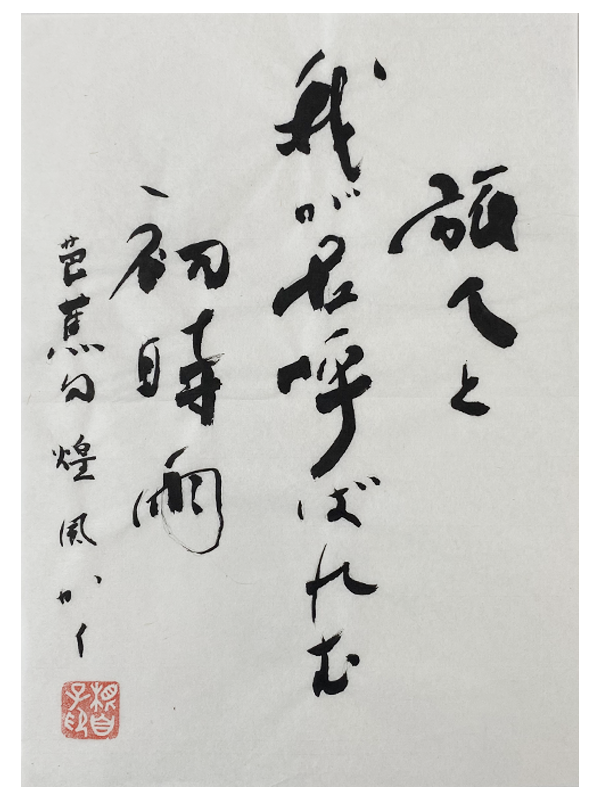 旅人と
我が名呼ばれむ
初時雨
芭蕉句 煌風かく